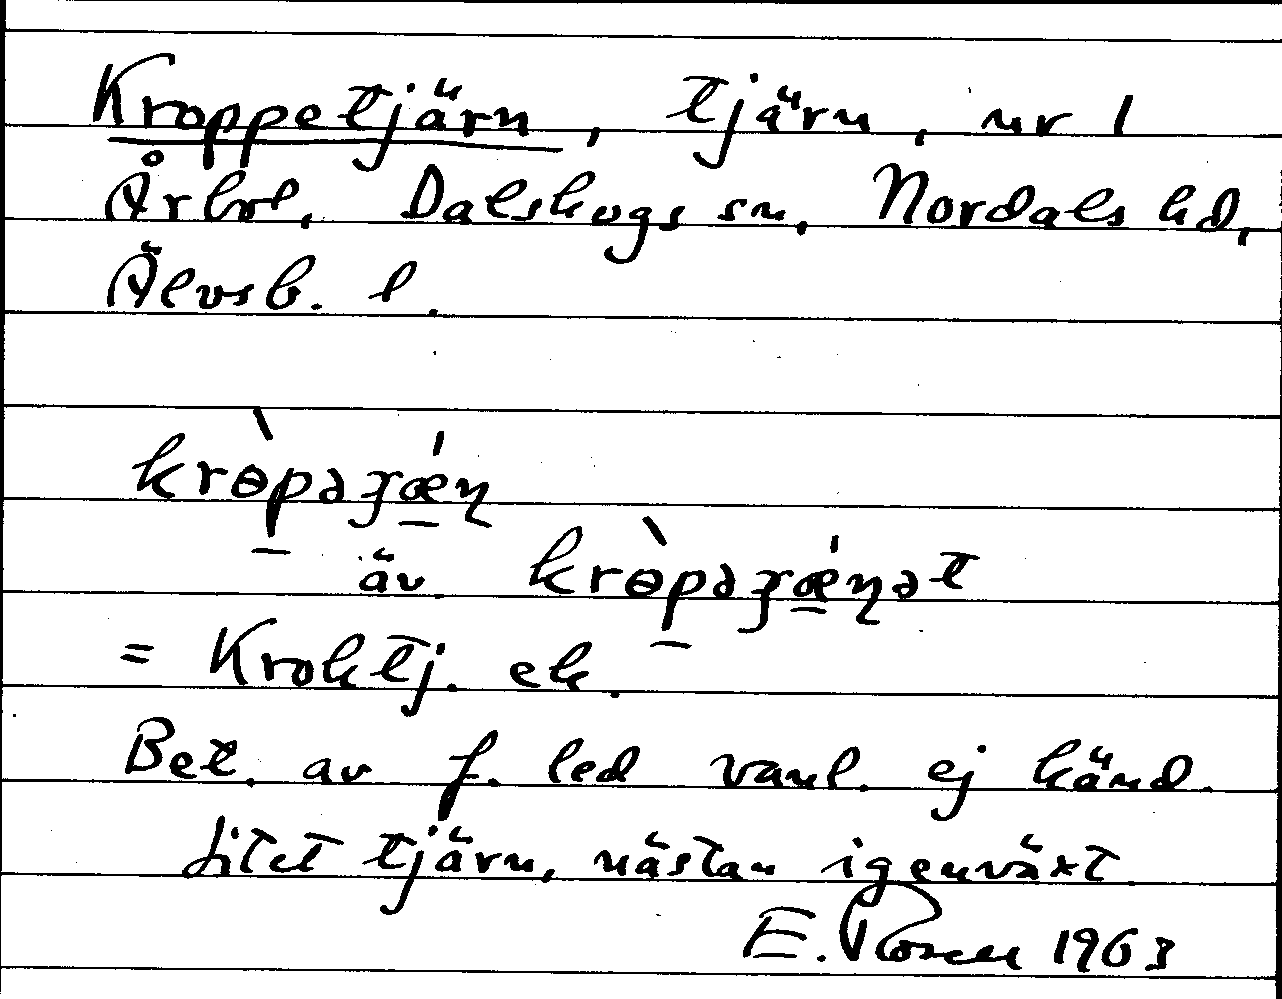 Kroppetjärn, tjärn, nr 1
Årbol, Dalskogs sn, Nordals hd,
Älvsb. l.
krɵ̀pəʒǽɳ
äv. krɵ̀pəʒǽɳət
= Kroktj. ek.
Bet. av f. led vanl. ej känd.
Litet tjärn, nästan igenväxt
E. Rosen 1963